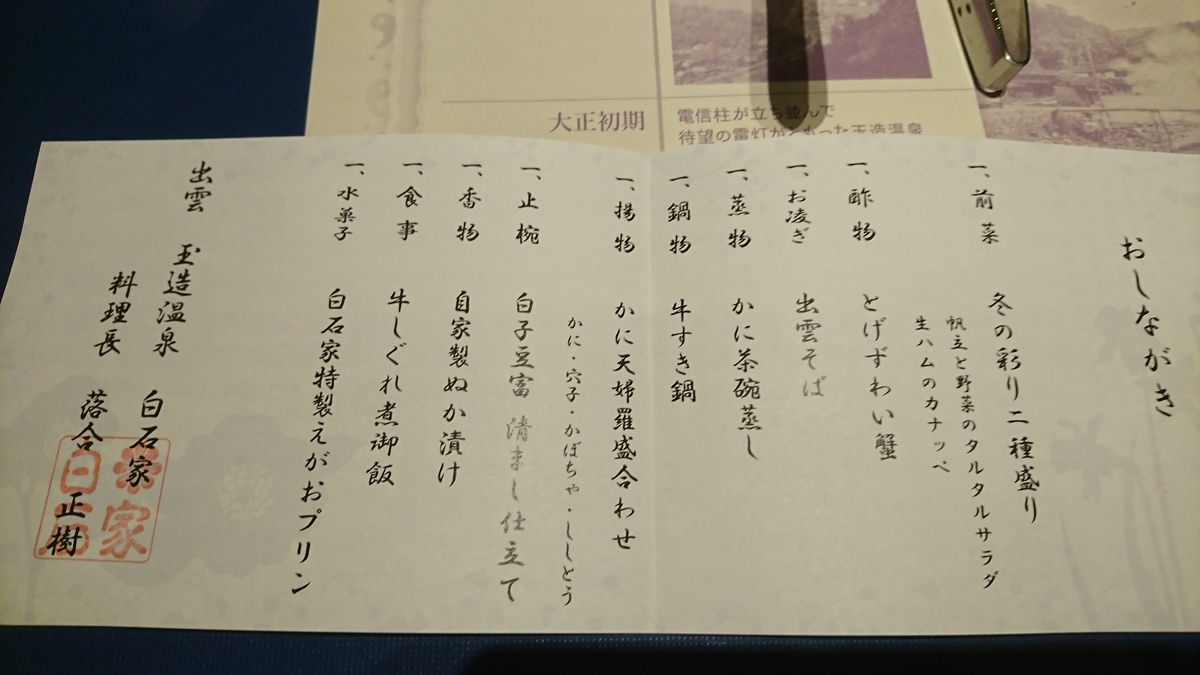 大正初期
電信柱が立ち並んで
待望の電灯がともった玉造温泉
おしながき
一、前菜 冬の彩り二種盛り
帆立と野菜のタルタルサラダ
生ハムのカナッペ
一、酢物 とげずわい蟹
一、お凌ぎ 出雲そば
一、蒸物 かに茶碗蒸し
一、鍋物 牛すき鍋
一、揚物 かに天婦羅盛合わせ
かに・穴子・かぼちゃ・ししとう
一、止椀 白子豆富 清まし仕立て
一、香物 自家製ぬか漬け
一、食事 牛しぐれ煮御飯
一、水菓子 白石家特製えがおプリン
出雲 玉造温泉 白石家
料理長 落合 正樹